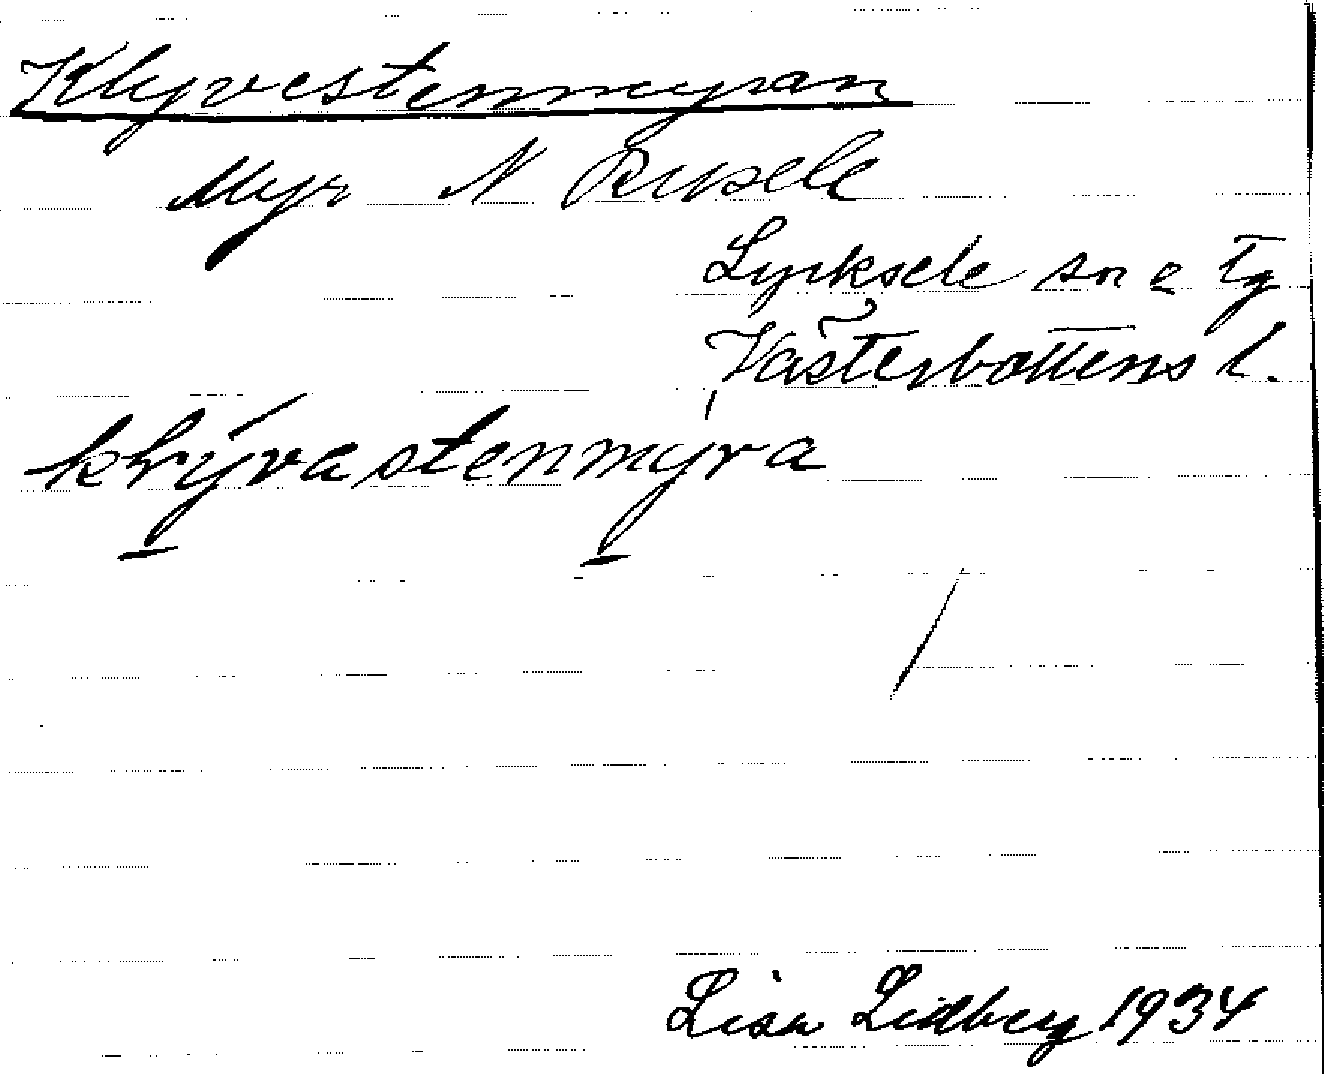 Klyvestenmyran
Myr N Rusele
Lycksele sn o tg
Västerbottens l.
klývastenmyra
Lisa Lidberg 1934